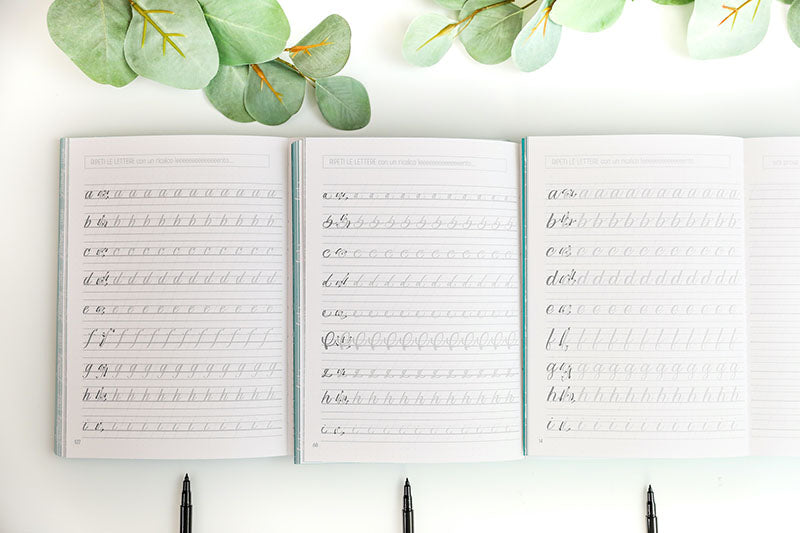 RIPETI LE LETTERE con un ricalco leeeeeeeeeeeeento...
a a a a a a a a a a a a a
b b b b b b b b b b b b b
c c c c c c c c c c c c c
d d d d d d d d d d d d d
e e e e e e e e e e e e e
f f f f f f f f f f f f
g g g g g g g g g g g g g
h h h h h h h h h h h h h
i i i i i i i i i i i i i
RIPETI LE LETTERE con un ricalco leeeeeeeeeeeeento...
a a a a a a a a a a a a a
b b b b b b b b b b b b b
c c c c c c c c c c c c c
d d d d d d d d d d d d d
e e e e e e e e e e e e e
f f f f f f f f f f f f
g g g g g g g g g g g g g
h h h h h h h h h h h h h
i i i i i i i i i i i i i
66
RIPETI LE LETTERE con un ricalco leeeeeeeeeeeeento
a a a a a a a a a a a a
b b b b b b b b b b b b
c c c c c c c c c c c c
d d d d d d d d d d d d
e e e e e e e e e e e e
f f f f f f f f f f f f
g g g g g g g g g g g g
h h h h h h h h h h h h
i i i i i i i i i i i i
14